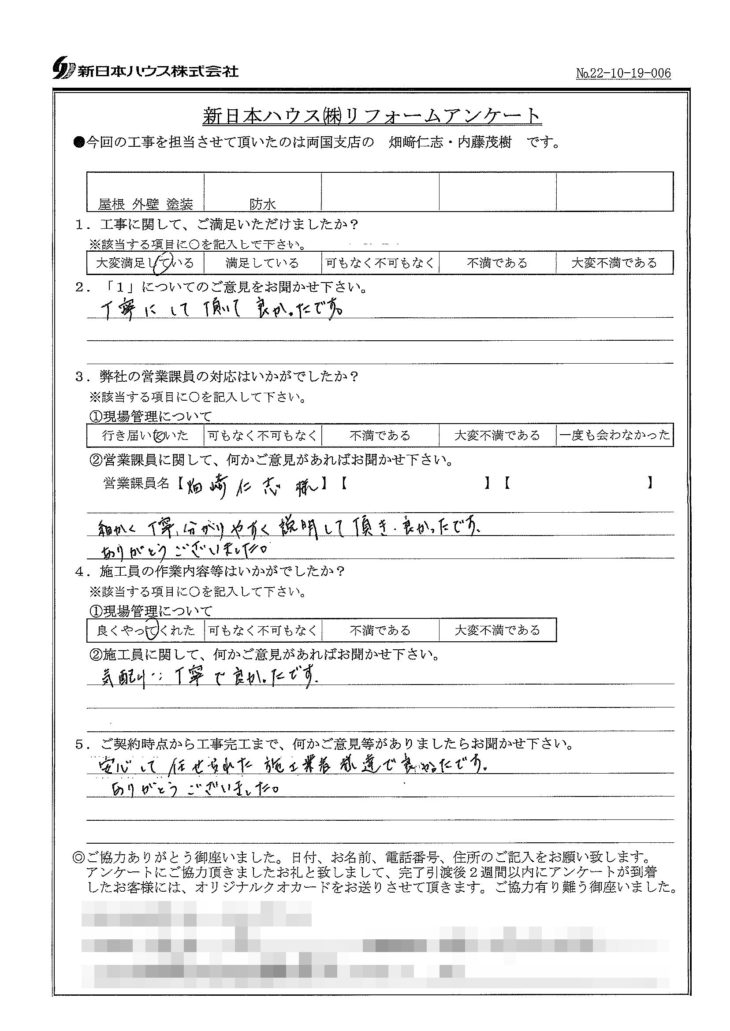 新日本ハウス株式会社
№22-10-19-006
新日本ハウス㈱リフォームアンケート
●今回の工事を担当させて頂いたのは両国支店の　畑﨑仁志・内藤茂樹　です。
屋根 外壁 塗装　防水
１．工事に関して、ご満足いただけましたか？
※該当する項目に○を記入して下さい。
大変満足している　満足している　可もなく不可もなく　不満である　大変不満である
２．「１」についてのご意見をお聞かせ下さい。
丁寧にして頂いて良かったです。
３．弊社の営業課員の対応はいかがでしたか？
※該当する項目に○を記入して下さい。
①現場管理について
行き届いていた　可もなく不可もなく　不満である　大変不満である　一度も会わなかった
②営業課員に関して、何かご意見があればお聞かせ下さい。
営業課員名【畑﨑仁志様】【　】【　】
細かく丁寧、分かりやすく説明して頂き、良かったです。
ありがとうございました。
４．施工員の作業内容等はいかがでしたか？
※該当する項目に○を記入して下さい。
①現場管理について
良くやってくれた　可もなく不可もなく　不満である　大変不満である
②施工員に関して、何かご意見があればお聞かせ下さい。
気配り 丁寧で良かったです。
５．ご契約時点から工事完工まで、何かご意見等がありましたらお聞かせ下さい。
安心して任せられた施工業者様達で良かったです。
ありがとうございました。
◎ご協力ありがとう御座いました。日付、お名前、電話番号、住所のご記入をお願い致します。
アンケートにご協力頂きましたお礼と致しまして、完了引渡後２週間以内にアンケートが到着
したお客様には、オリジナルクオカードをお送りさせて頂きます。ご協力有り難う御座いました。